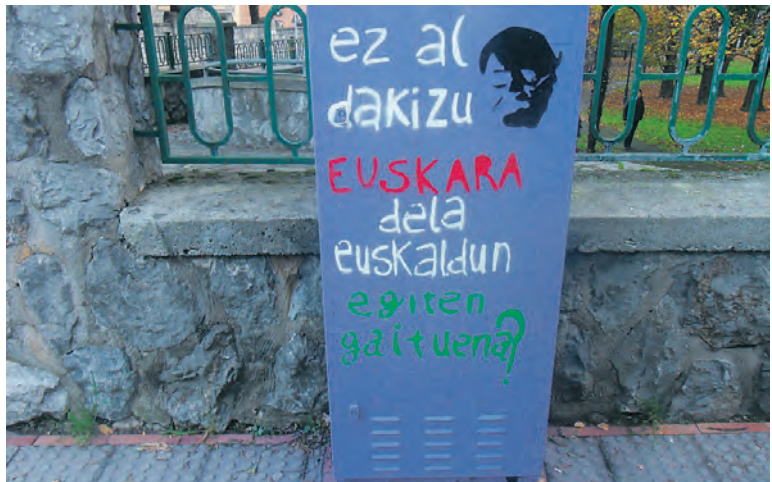 ez al
dakizu
EUSKARA
dela
euskaldun
egiten
gaituena?